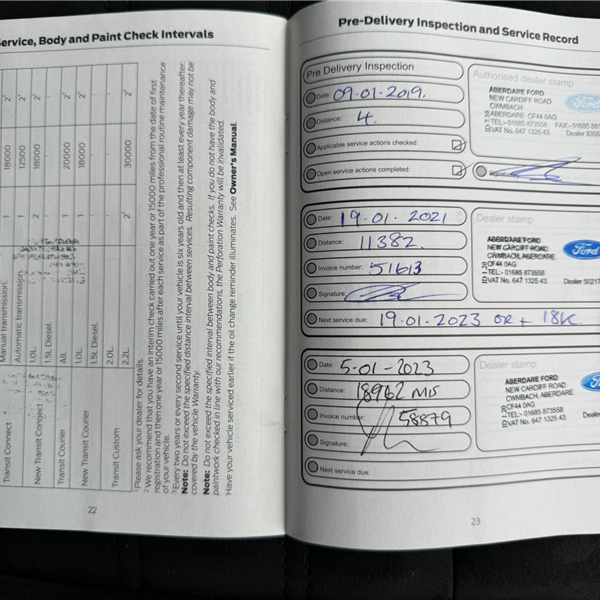 Service, Body and Paint Check Intervals
Manual transmission.
1
18000
2¹
Transit Connect
Automatic transmission.
1
12500
2¹
1.0L
2
18000
2¹
New Transit Connect
1.5L Diesel.
Transit Courier
All.
1
20000
2¹
New Transit Courier
1.0L
1
18000
2¹
1.5L Diesel.
2.0L
Transit Custom
2.2L
2²
30000
2¹
¹ Please ask your dealer for details.
² We recommend that you have an interim check carried out one year or 15000 miles from the date of first
registration and then one year or 15000 miles after each service as part of the professional routine maintenance
of your vehicle.
³ Every two years or every second service until your vehicle is six years old and then at least every year thereafter.
Note: Do not exceed the specified distance interval between services. Resulting component damage may not be
covered by the vehicle Warranty.
Note: Do not exceed the specified interval between body and paint checks. If you do not have the body and
paintwork checked in line with our recommendations, the Perforation Warranty will be invalidated.
Have your vehicle serviced earlier if the oil change reminder illuminates. See Owner's Manual.
22
Pre-Delivery Inspection and Service Record
Pre Delivery Inspection
Authorised dealer stamp
Date: 09.01.2019.
Distance: 4.
Applicable service actions checked:
Open service actions completed:
ABERDARE FORD
NEW CARDIFF ROAD
CWMBACH
ABERDARE. CF44 0AG
TEL:- 01685 873558 FAX:-01685 881
VAT No. 647 1325 43 Dealer 8355
Ford
Date: 19.01.2021
Distance: 11382.
Invoice number: 51613
Signature:
Next service due: 19.01.2023 OR + 18K.
Dealer stamp
ABERDARE FORD
NEW CARDIFF ROAD
CWMBACH, ABERDARE
CF44 0AG
TEL:- 01685 873558
VAT No. 647 1325 43 Dealer 50217
Ford
Date: 5-01-2023
Distance: 18962 MIS
Invoice number: 58879
Signature:
Next service due:
Dealer stamp
ABERDARE FORD
NEW CARDIFF ROAD
CWMBACH, ABERDARE
CF44 0AG
TEL:- 01685 873558
VAT No. 647 1325 43 Dealer
23